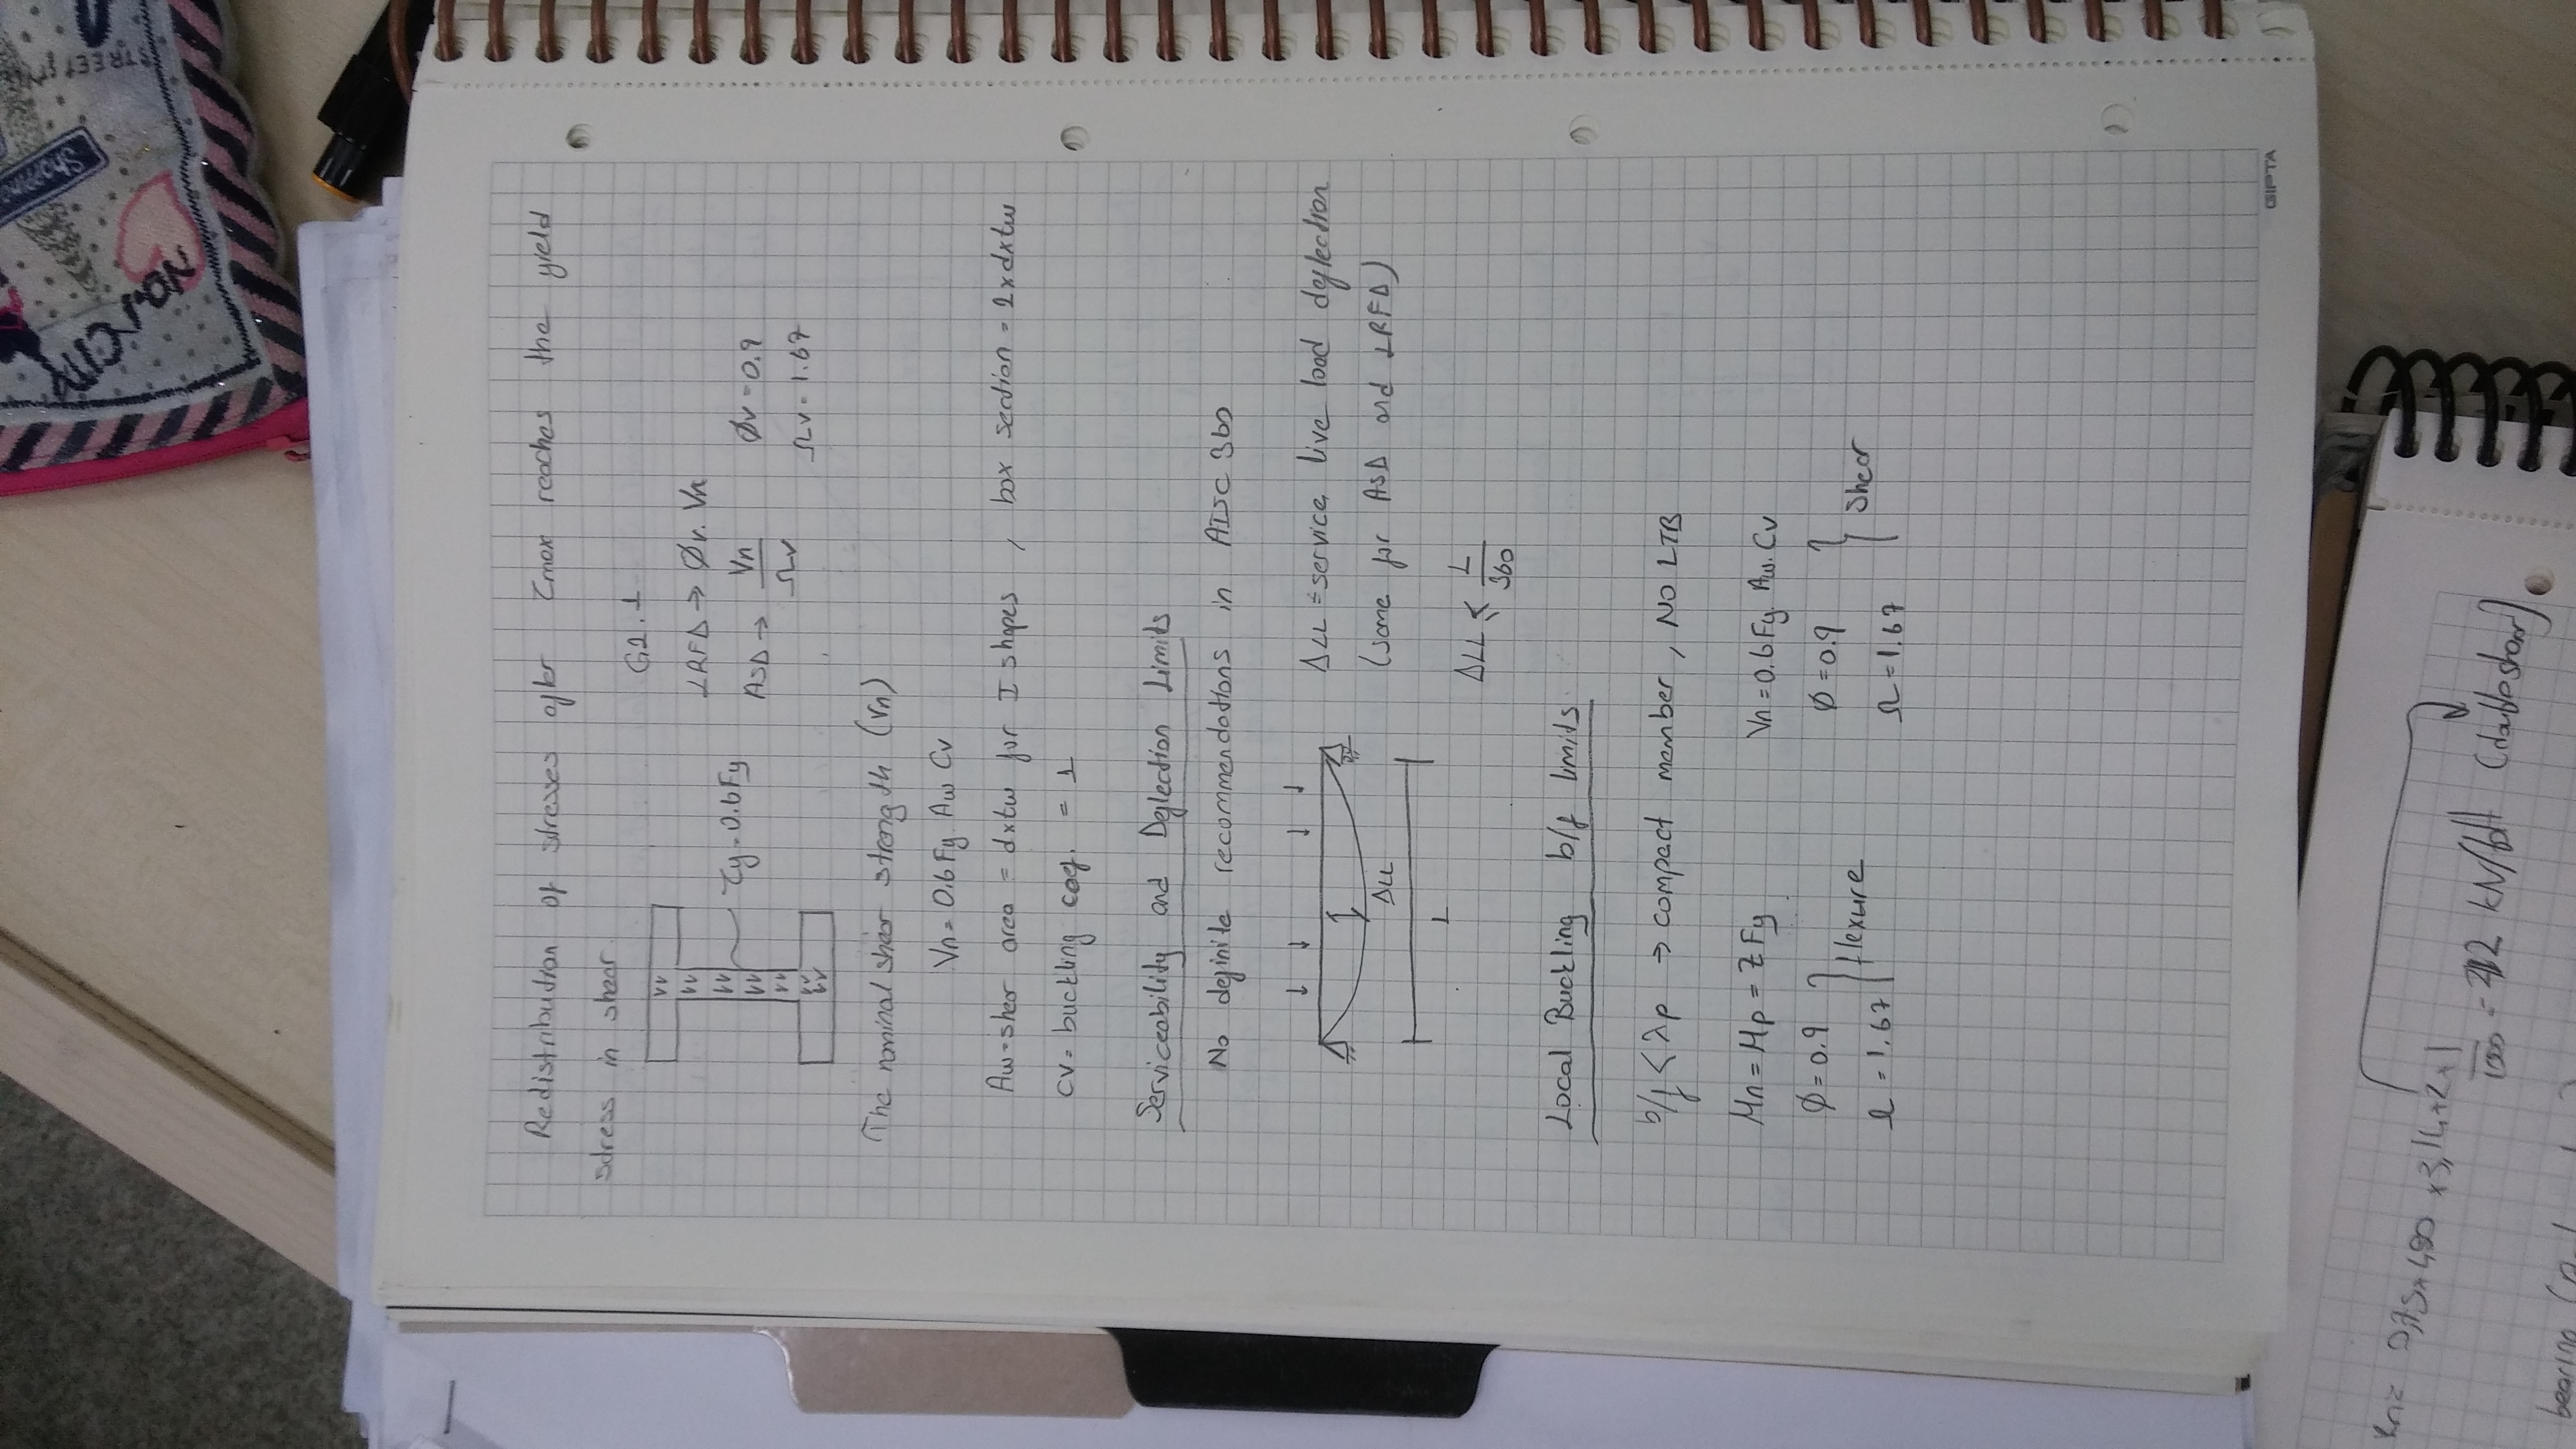 Redistribution of stresses after τmax reaches the yield
stress in shear.
G2.1
LRFD → Øv. Vn
τy=0.6Fy
ASD → Vn/Ωv
Øv=0.9
Ωv=1.67
The nominal shear strength (Vn)
Vn= 0.6 Fy Aw Cv
Aw=shear area = dxtw for I shapes , box section = 2xdxtw
Cv= buckling coef. = 1
Serviceability and Deflection Limits
No definite recommendations in AISC 360
ΔLL =service live load deflection
ΔLL
(same for ASD and LRFD)
L
ΔLL ≤ L/360
Local Buckling b/f limits
b/f < λp → compact member, NO LTB
Mn = Mp = Z Fy
Vn = 0.6 Fy. Aw. Cv
Ø = 0.9
Ω = 1.67
flexure
Ø = 0.9
Ω = 1.67
shear
GIPTA
0,75x480x3,14x2x1
1000
kN/bolt (double shear)
bearing